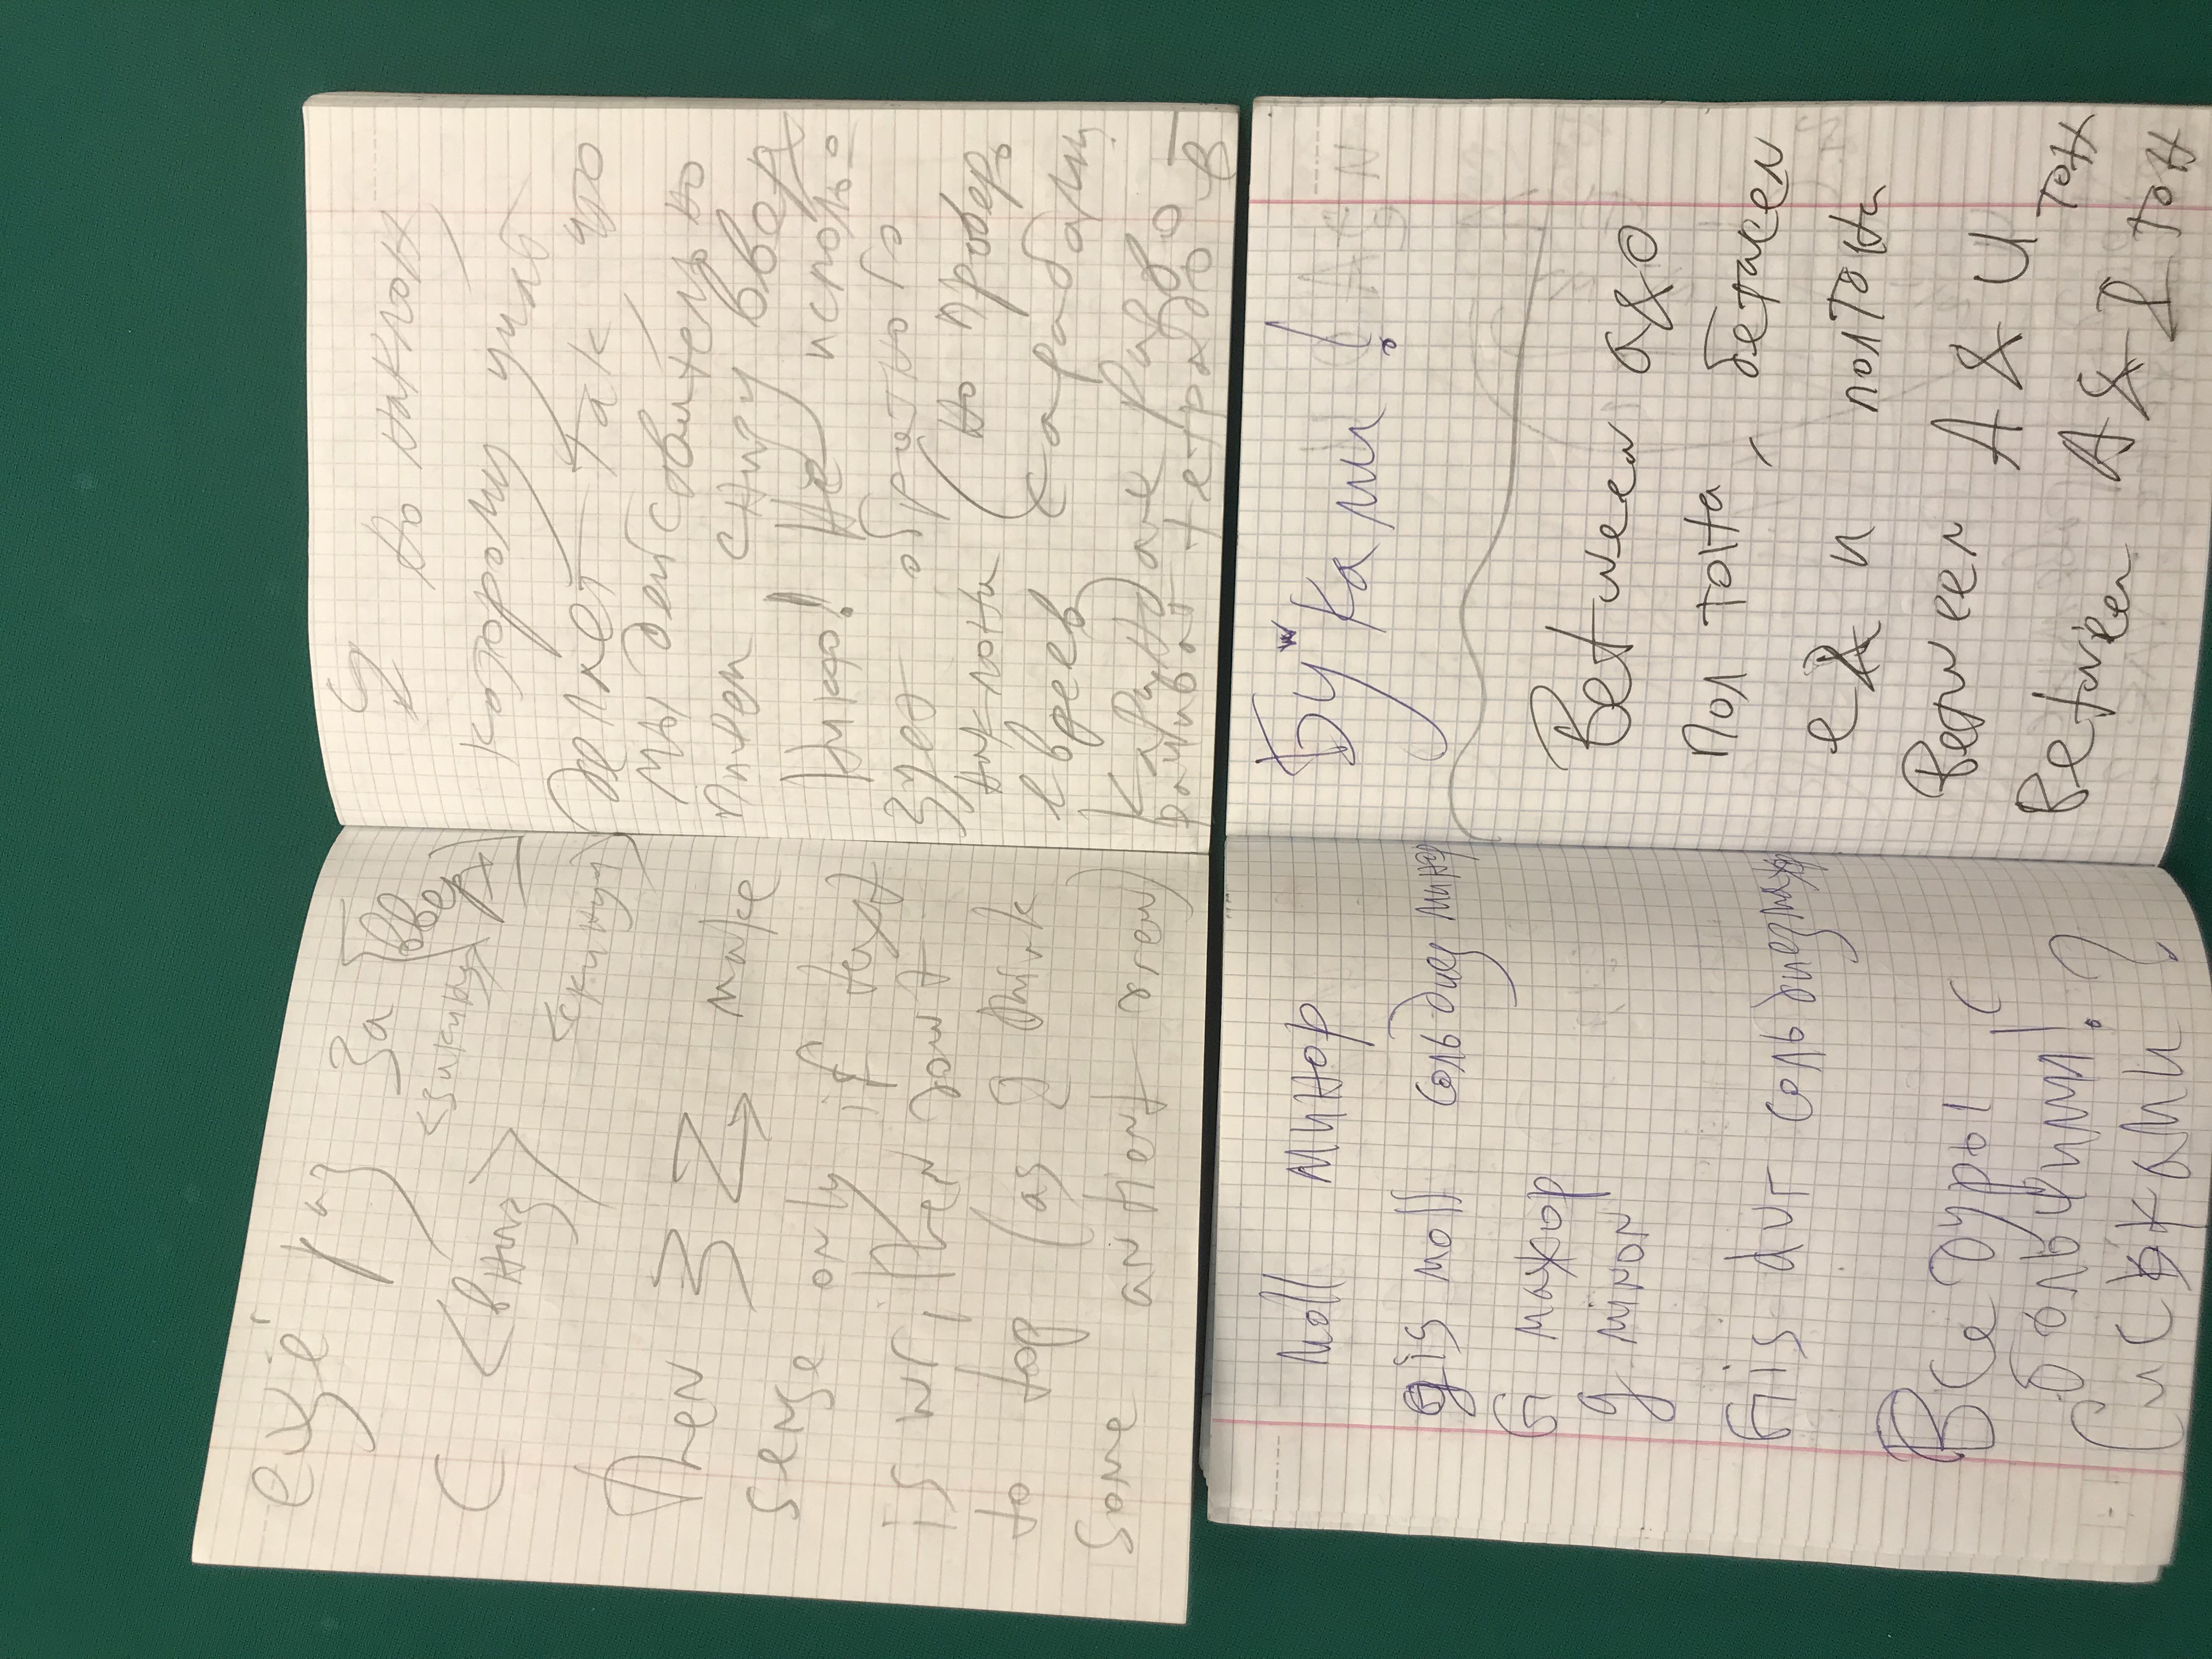 ещё раз за [вверх]
<закинуя>
С <вниз>
<скинуя>
Then 3 Z make
sense only if text
is writhen downt
to top (as I think
some antient view)
но наклон
которому учат
делает так что
мы дейсовительно
пишем снизу вверх
Никто! Не исполь=
зует обратного
наклона (но проверь
евреев с арабами
Карандаше разво
рачиват тетрадь в
moll минор
gis moll соль диез минор
G мажор
g minor
Gis dur соль диез мажор
Все дуры с
большими!
Сиськами?
Буквами!
Between a&o
пол тона, бетвеен
е & и полтона
Between A & И тон
Between A & I тон